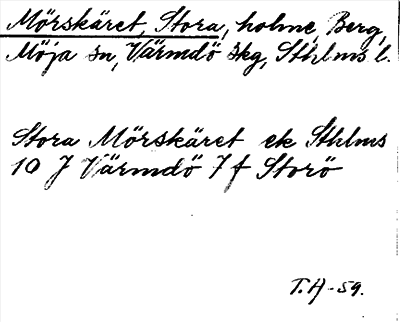 Mörskäret, Stora, holme, Berg,
Möja sn, Värmdö skg, Sthlms l.
Stora Mörskäret ek Sthlms
10 J Värmdö 7 f Storö
T.H-59.